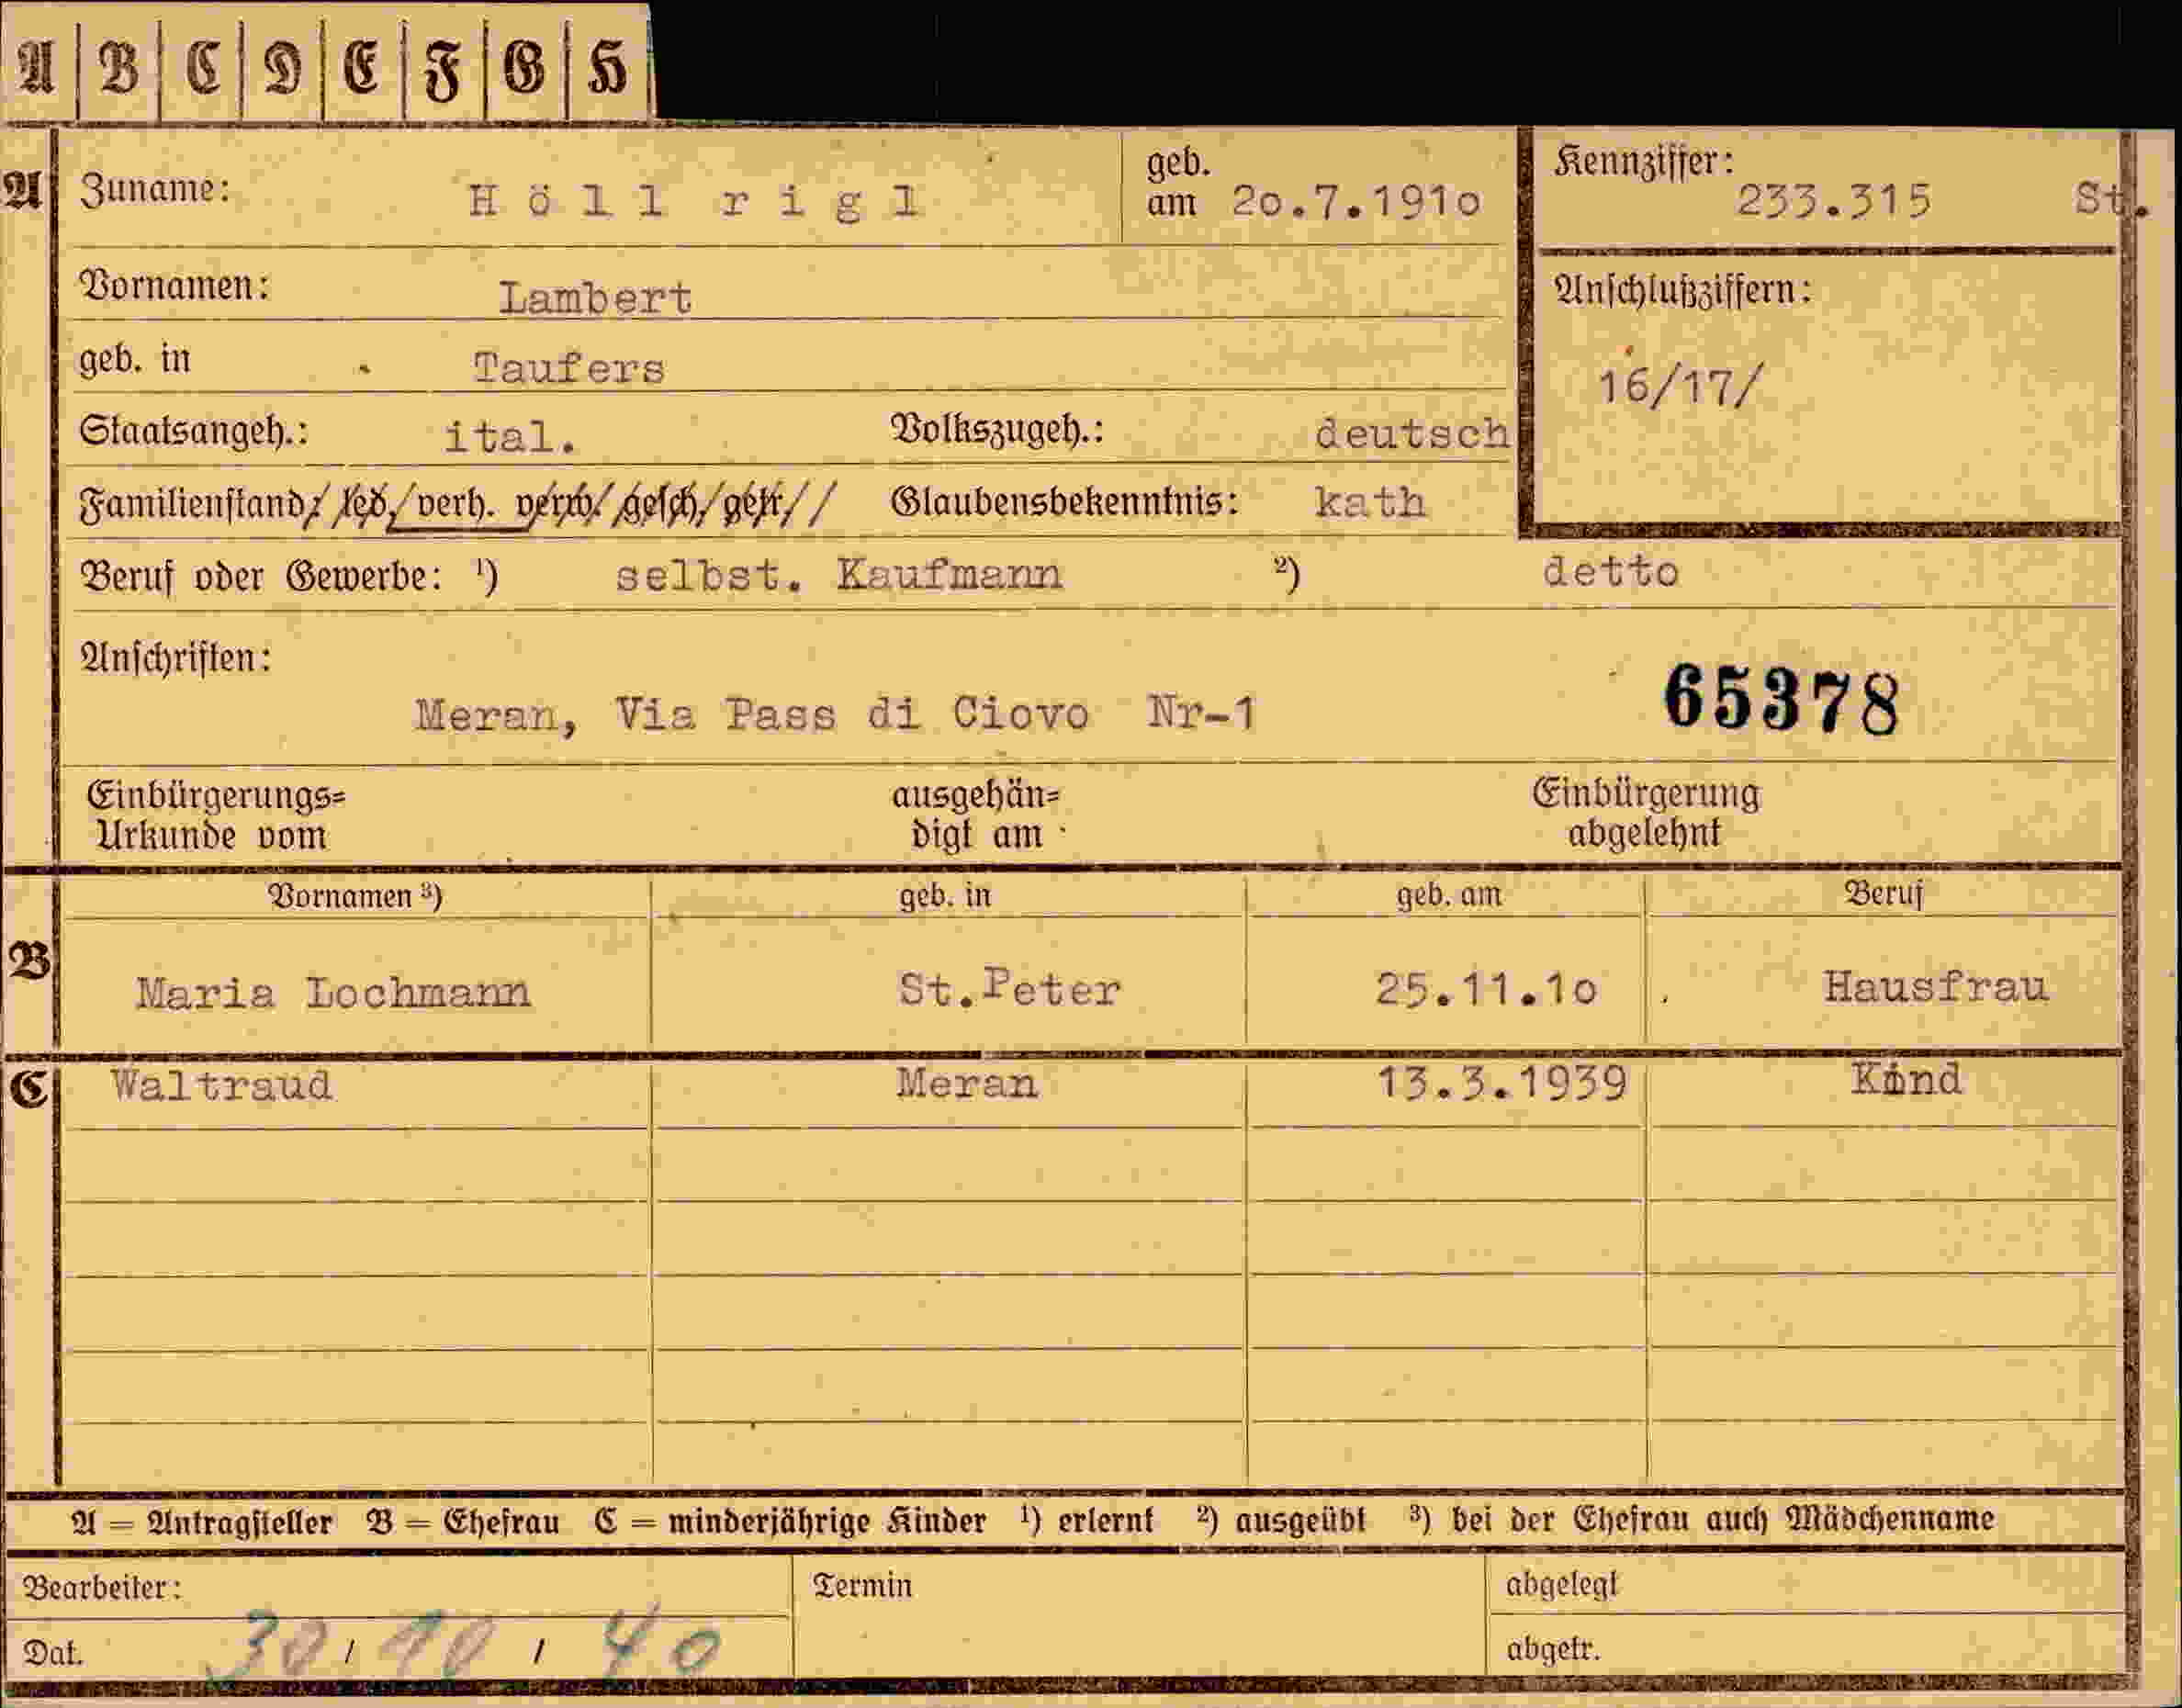 A | B | C | D | E | F | G | H
A Zuname: Höll rigl geb. am 20.7.1910 Kennziffer: 233.315 St.
Vornamen: Lambert Anschlußziffern:
geb. in Taufers 16/17/
Staatsangeh.: ital. Volkszugeh.: deutsch
Familienstand: led. verh. verw. gesch. getr. Glaubensbekenntnis: kath
Beruf oder Gewerbe: ¹) selbst. Kaufmann ²) detto
Anschriften:
Meran, Via Pass di Ciovo Nr-1 65378
Einbürgerungs= ausgehän= Einbürgerung
Urkunde vom digt am abgelehnt
Vornamen ³) geb. in geb. am Beruf
B Maria Lochmann St.Peter 25.11.10 Hausfrau
C Waltraud Meran 13.3.1939 Kind
A = Antragsteller B = Ehefrau C = minderjährige Kinder ¹) erlernt ²) ausgeübt ³) bei der Ehefrau auch Mädchenname
Bearbeiter: Termin abgelegt
Dat. 30 / 10 / 40 abgetr.